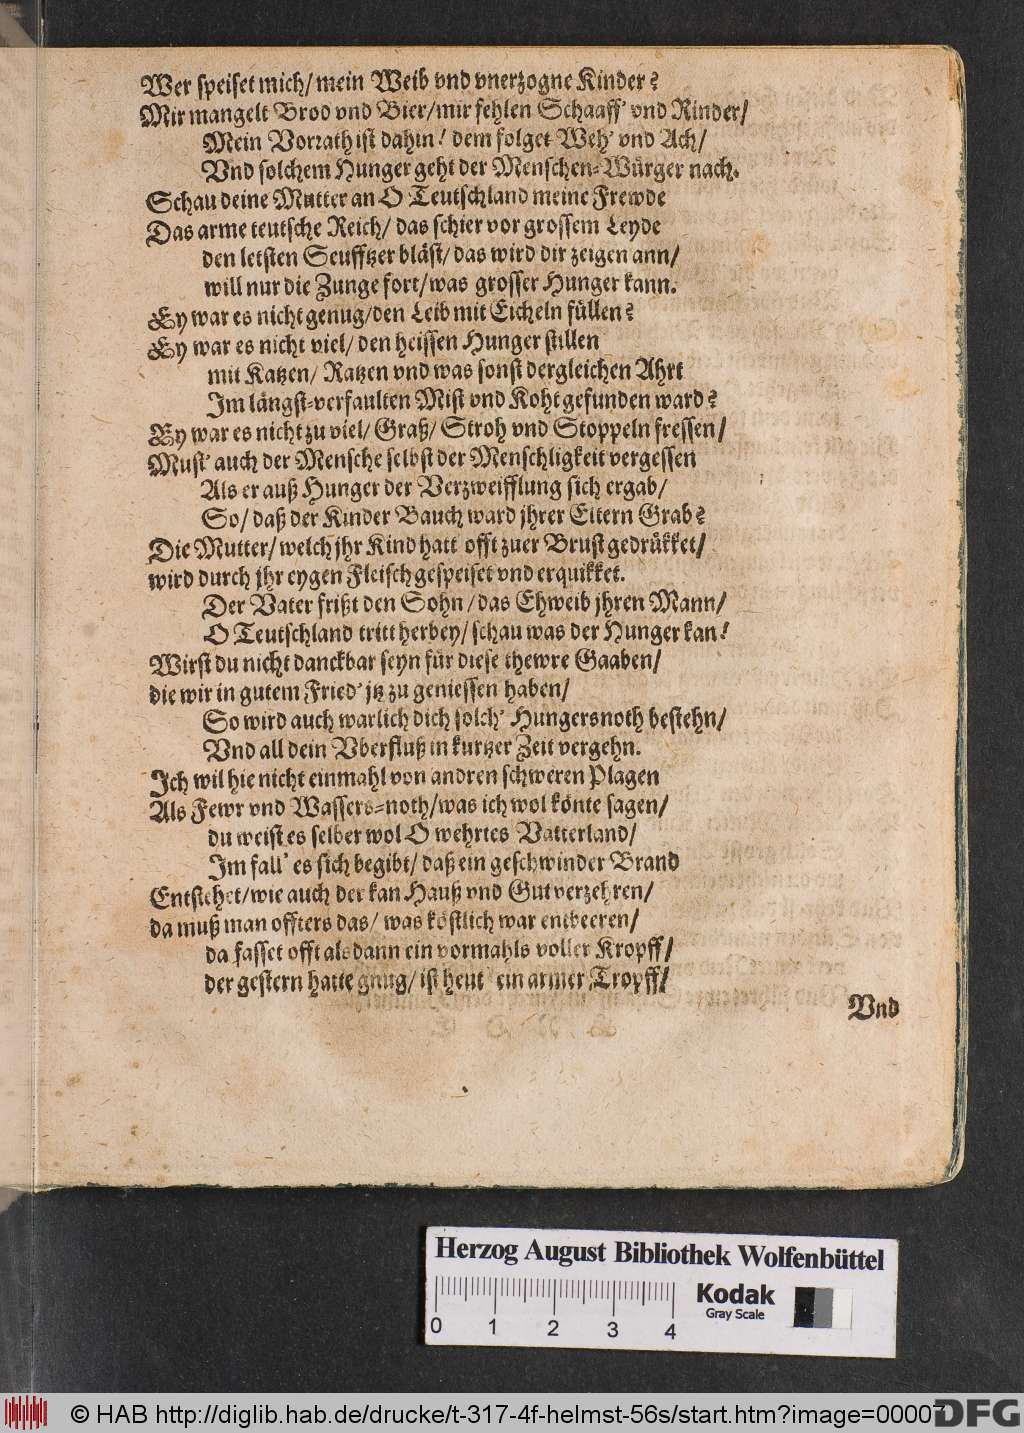 Wer speiset mich/ mein Weib vnd vnerzogne Kinder?
Mir mangelt Brod vnd Bier/mir fehlen Schaaff' vnd Rinder/
Mein Vorrath ist dahin! dem folget Weh' vnd Ach/
Vnd solchem Hunger geht der Menschen-Würger nach.
Schau deine Mutter an O Teutschland meine Frewde
Das arme teutsche Reich/ das schier vor grossem Leyde
den letsten Seufftzer bläst/ das wird dir zeigen ann/
will nur die Zunge fort/was grosser Hunger kann.
Ey war es nicht genug/den Leib mit Eicheln füllen?
Ey war es nicht viel/ den heissen Hunger stillen
mit Katzen/ Ratzen vnd was sonst dergleichen Ahrt
Im längst-verfaulten Mist vnd Koht gefunden ward?
Ey war es nicht zu viel/ Graß/ Stroh vnd Stoppeln fressen/
Must' auch der Mensche selbst der Menschligkeit vergessen
Als er auß Hunger der Verzweifflung sich ergab/
So/ daß der Kinder Bauch ward jhrer Eltern Grab?
Die Mutter/ welch jhr Kind hatt offt zuer Brust gedrükket/
wird durch jhr eygen Fleisch gespeiset vnd erquikket.
Der Vater frißt den Sohn/das Ehweib jhren Mann/
O Teutschland tritt herbey/ schau was der Hunger kan!
Wirst du nicht danckbar seyn für diese thewre Gaaben/
die wir in gutem Fried' jtz zu geniessen haben/
So wird auch warlich dich solch' Hungersnoth bestehn/
Vnd all dein Vberfluß in kurtzer Zeit vergehn.
Ich wil hie nicht einmahl von andren schweren Plagen
Als Fewr vnd Wassers-noth/was ich wol könte sagen/
du weist es selber wol O wehrtes Vatterland/
Im fall' es sich begibt/ daß ein geschwinder Brand
Entstehet/wie auch der kan Hauß vnd Gut verzehren/
da muß man offters das/ was köstlich war entbeeren/
da fasset offt alsdann ein vormahls voller Kropff/
der gestern hatte gnug/ ist heut' ein armer Tropff/
Vnd
Herzog August Bibliothek Wolfenbüttel
Kodak
Gray Scale
0 1 2 3 4
© HAB http://diglib.hab.de/drucke/t-317-4f-helmst-56s/start.htm?image=00007
DFG